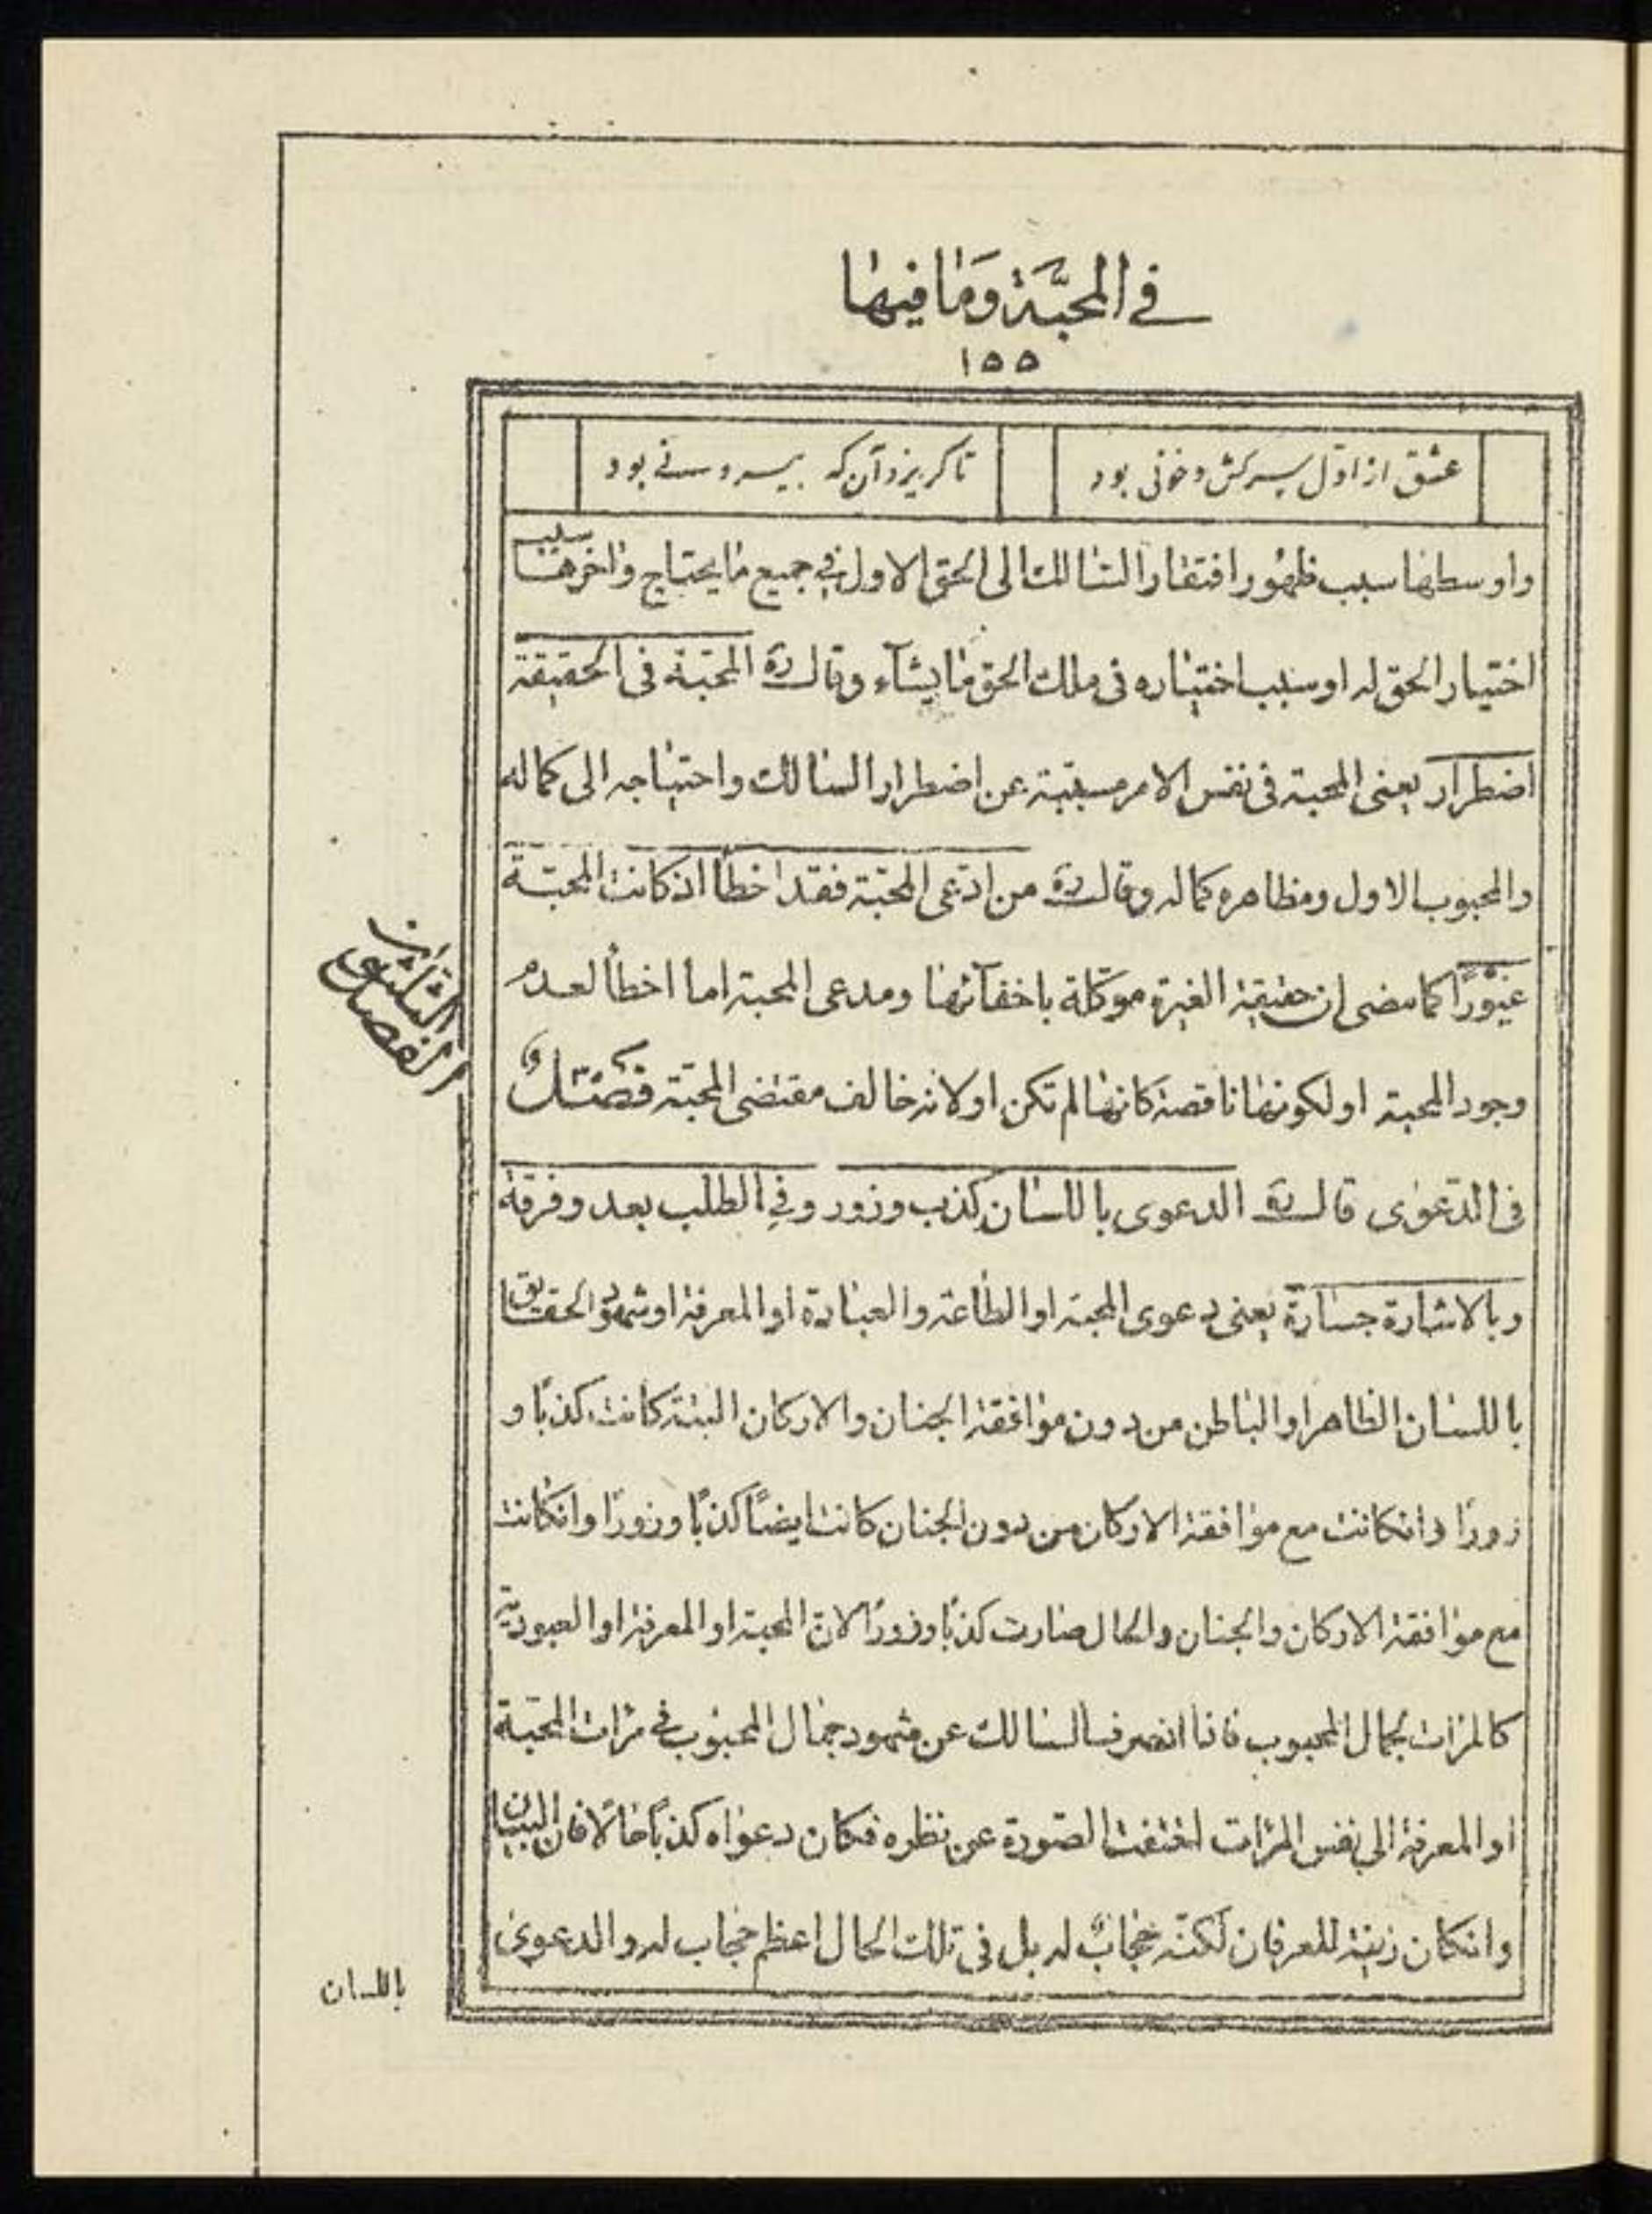 في المحبّة وَمٰا فيهٰا
١٥٥
عشق از اوّل سرکش و خونی بود تا گریزد آن که بیرونی بود
واوسطها سبب ظهُور افتقار السّالك الى الحق الاول في جميع مٰا يحتاج وٰاخرها سبب
اختيار الحق له او سبب اختيٰاره فى ملك الحق مٰا يشٰآء وقال ره المحبّة فى الحقيقة
اضطرار يعنى المحبة فى نفس الامر مسبّبة عن اضطرار السٰالك واحتيٰاجه الى كماله
والمحبوب الاول ومظاهره كماله وقال ره من ادّعى المحبّة فقد اخطأ اذ كانت المحبّة
غيورًا كما مضى ان حقيقة الغيرة موكّلة باخفآئهٰا ومدعى المحبة اما اخطأ لعدم
وجود المحبة او لكونهٰا ناقصة كانهٰا لم تكن او لانه خالف مقتضى المحبّة فصل
فى الدّعوٰى قال ره الدعوى باللسٰان كذب وزور وفي الطلب بعد وفرقة
وبالاشٰارة جسٰارة يعنى دعوى المحبة او الطٰاعة والعبٰادة او المعرفة او شهود الحقايق
باللسٰان الظاهر او البٰاطن من دون موٰافقة الجنان والاركان البتّة كانت كذبًا و
زورًا وانكانت مع موٰافقة الاركان من دون الجنان كانت ايضًا كذبًا وزورًا وانكانت
مع موٰافقة الاركان والجنان والحال صٰارت كذبًا وزورًا لانّ المحبة او المعرفة او العبودية
كالمرٰات لجمال المحبوب فاذا انصرف السٰالك عن شهود جمٰال المحبوب في مرٰات المحبّة
او المعرفة الى نفس المرٰات اختفت الصّورة عن نظره فكان دعوٰاه كذبًا حٰالًا فان البيان
وانكان زينة للعرفان لكنّه حجابٌ له بل فى تلك الحال اعظم حجاب له والدعوىٰ
الفصل الثلثون
باللسان